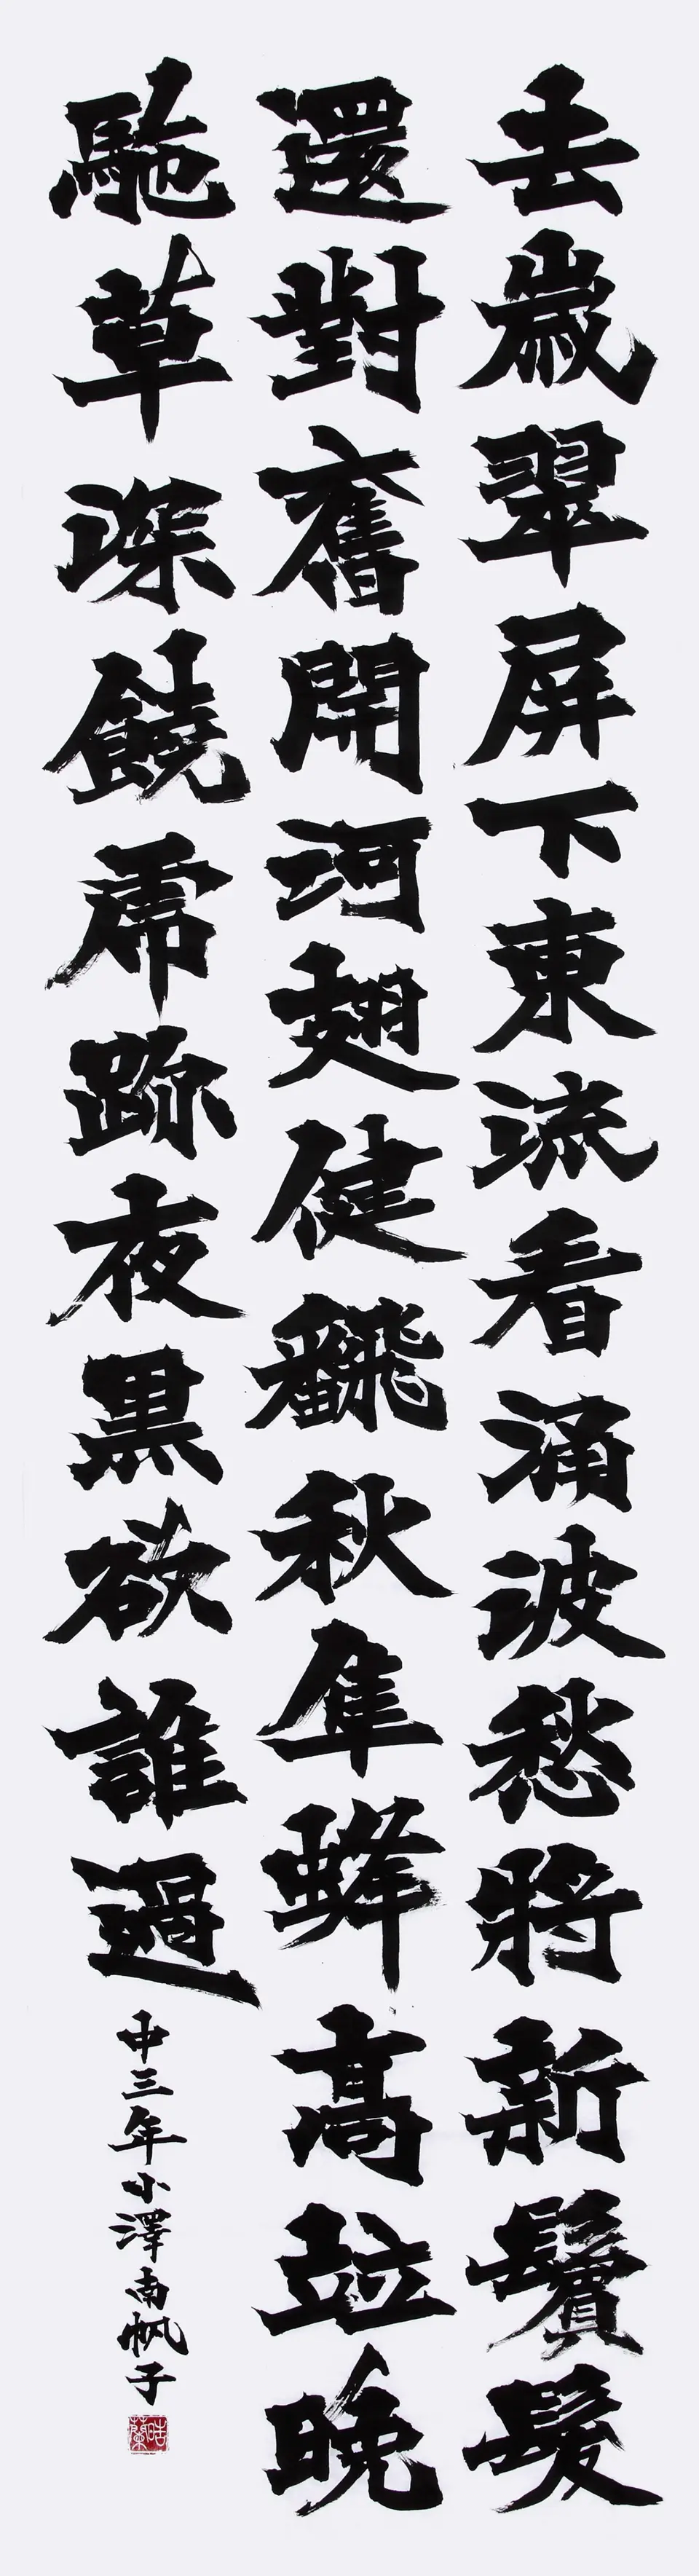 去歲翠屏下東流看涌波愁將新鬢髮
還對奮開河翅健飜秋隼蜂高竝晚
馳草深饒虎跡夜黒欲誰過
中三年小澤南帆子